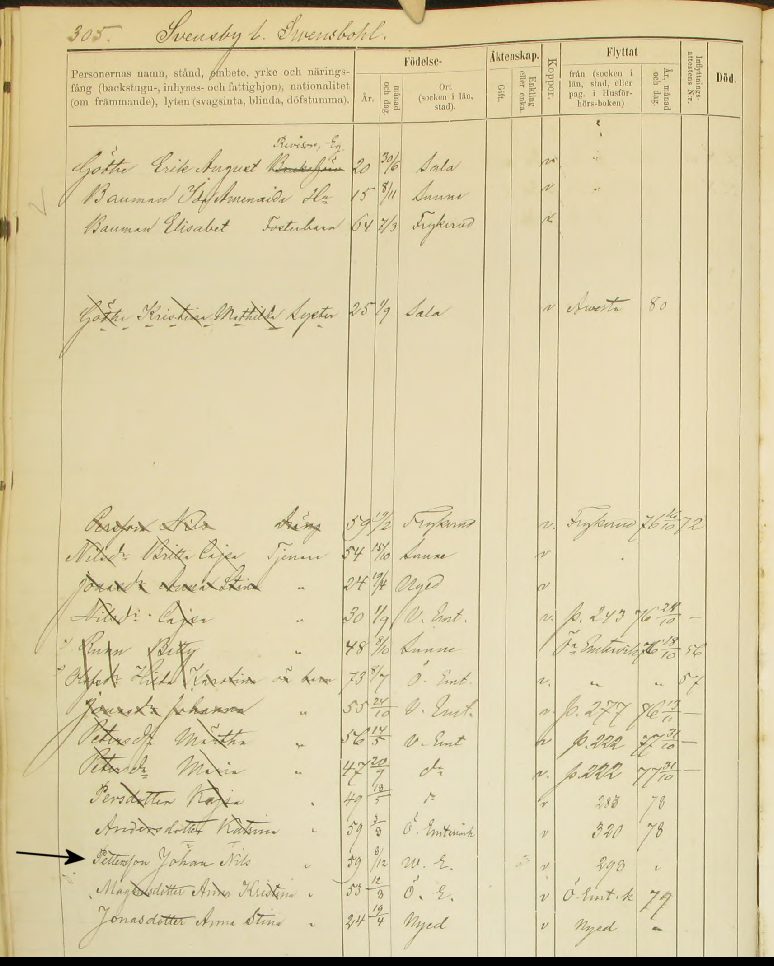 305. Svensby t. Swensbohl.
Personernas namn, stånd, embete, yrke och närings-
fång (backstugu-, inhyses- och fattighjon), nationalitet
(om främmande), lyten (svagsinta, blinda, döfstumma).
Födelse-
År.
månad och dag
Ort (socken i län, stad).
Äktenskap.
Gift.
Enkling eller enka.
Koppor.
Flyttat
från (socken i län, stad, eller pag. i Husför-hörs-boken)
År, månad och dag.
Inflyttnings-attestens N:r.
Död.
Revisor, Eg.
Göthe Erik August 20 30/6 Sala v
Bauman Ida Hu 15 8/11 Sunne v
Bauman Elisabet Fosterbarn 64 2/3 Frykerud v
Göthe Kristina Mathilda Syster 25 1/9 Sala v Avesta 80
Persson Nils Dräng 59 19/2 Frykerud v. Frykerud 76 10 72
Nilsdr Britta Cajsa Tjenare 54 15/10 Sunne v
Jonasdr Anna Stina " 24 19/4 Nyed v
Nilsdr Cajsa " 30 1/9 V. Emt. v. p. 243 76 28/10 —
Betty " 48 8/10 Sunne 76 18/10 56
Karolin 73 8/7 Ö. Emt v. " " 57
Jonasdr Johanna " 55 24/10 V. Emt. v p. 277 76 17/11 —
Petersdr Märtha " 56 14/5 V. Emt v p. 222 77 31/10 —
Petersdr Maria " 47 20/7 do v. p. 222 77 31/10 —
Persdotter Kajsa " 49 13/5 " v 283 78
Andersdotter Katrina " 59 3/3 Ö. Emtervik v 320 78
Petterson Johan Nils " 59 8/12 W. E. v 293 "
Magnusdotter Anna Kristina " 53 12/3 Ö. E. v Ö Emt. k 79
Jonasdotter Anna Stina " 24 19/4 Nyed v Nyed "